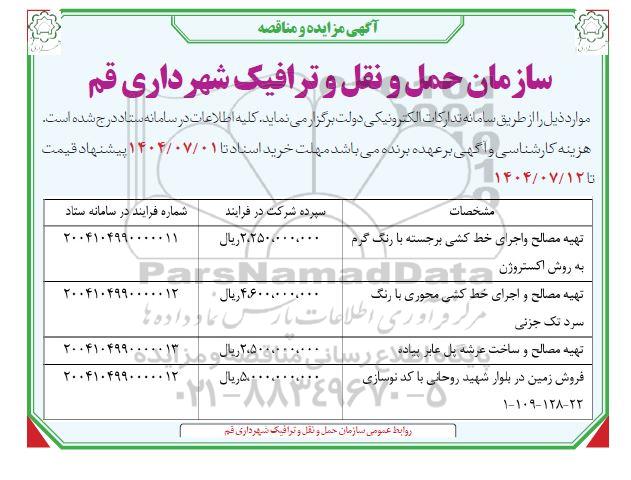 آگهی مزایده و مناقصه
سازمان حمل و نقل و ترافیک شهرداری قم
موارد ذیل را از طریق سامانه تدارکات الکترونیکی دولت برگزار می نماید. کلیه اطلاعات در سامانه ستاد درج شده است.
هزینه کارشناسی و آگهی بر عهده برنده می باشد مهلت خرید اسناد تا ۱۴۰۴/۰۷/۰۱ پیشنهاد قیمت
تا ۱۴۰۴/۰۷/۱۲
مشخصات سپرده شرکت در فرایند شماره فرایند در سامانه ستاد
تهیه مصالح واجرای خط کشی برجسته با رنگ گرم ۲،۲۵۰،۰۰۰،۰۰۰ریال ۲۰۰۴۱۰۴۹۹۰۰۰۰۰۱۱
به روش اکستروژن
تهیه مصالح و اجرای خط کشی محوری با رنگ ۴،۶۰۰،۰۰۰،۰۰۰ریال ۲۰۰۴۱۰۴۹۹۰۰۰۰۰۱۲
سرد تک جزنی
تهیه مصالح و ساخت عرشه پل عابر پیاده ۲،۵۰۰،۰۰۰،۰۰۰ریال ۲۰۰۴۱۰۴۹۹۰۰۰۰۰۱۳
فروش زمین در بلوار شهید روحانی با کد نوسازی ۵،۰۰۰،۰۰۰،۰۰۰ریال ۲۰۰۴۱۰۴۹۹۰۰۰۰۰۱۲
۱-۱۰۹-۱۲۸-۲۲
روابط عمومی سازمان حمل و نقل و ترافیک شهرداری قم
ParsNamadData
مرکز فرآوری اطلاعات پارس نماد داده ها
پایگاه اطلاع رسانی مناقصه و مزایده
۰۲۱-۸۸۳۴۹۶۷۰-۵